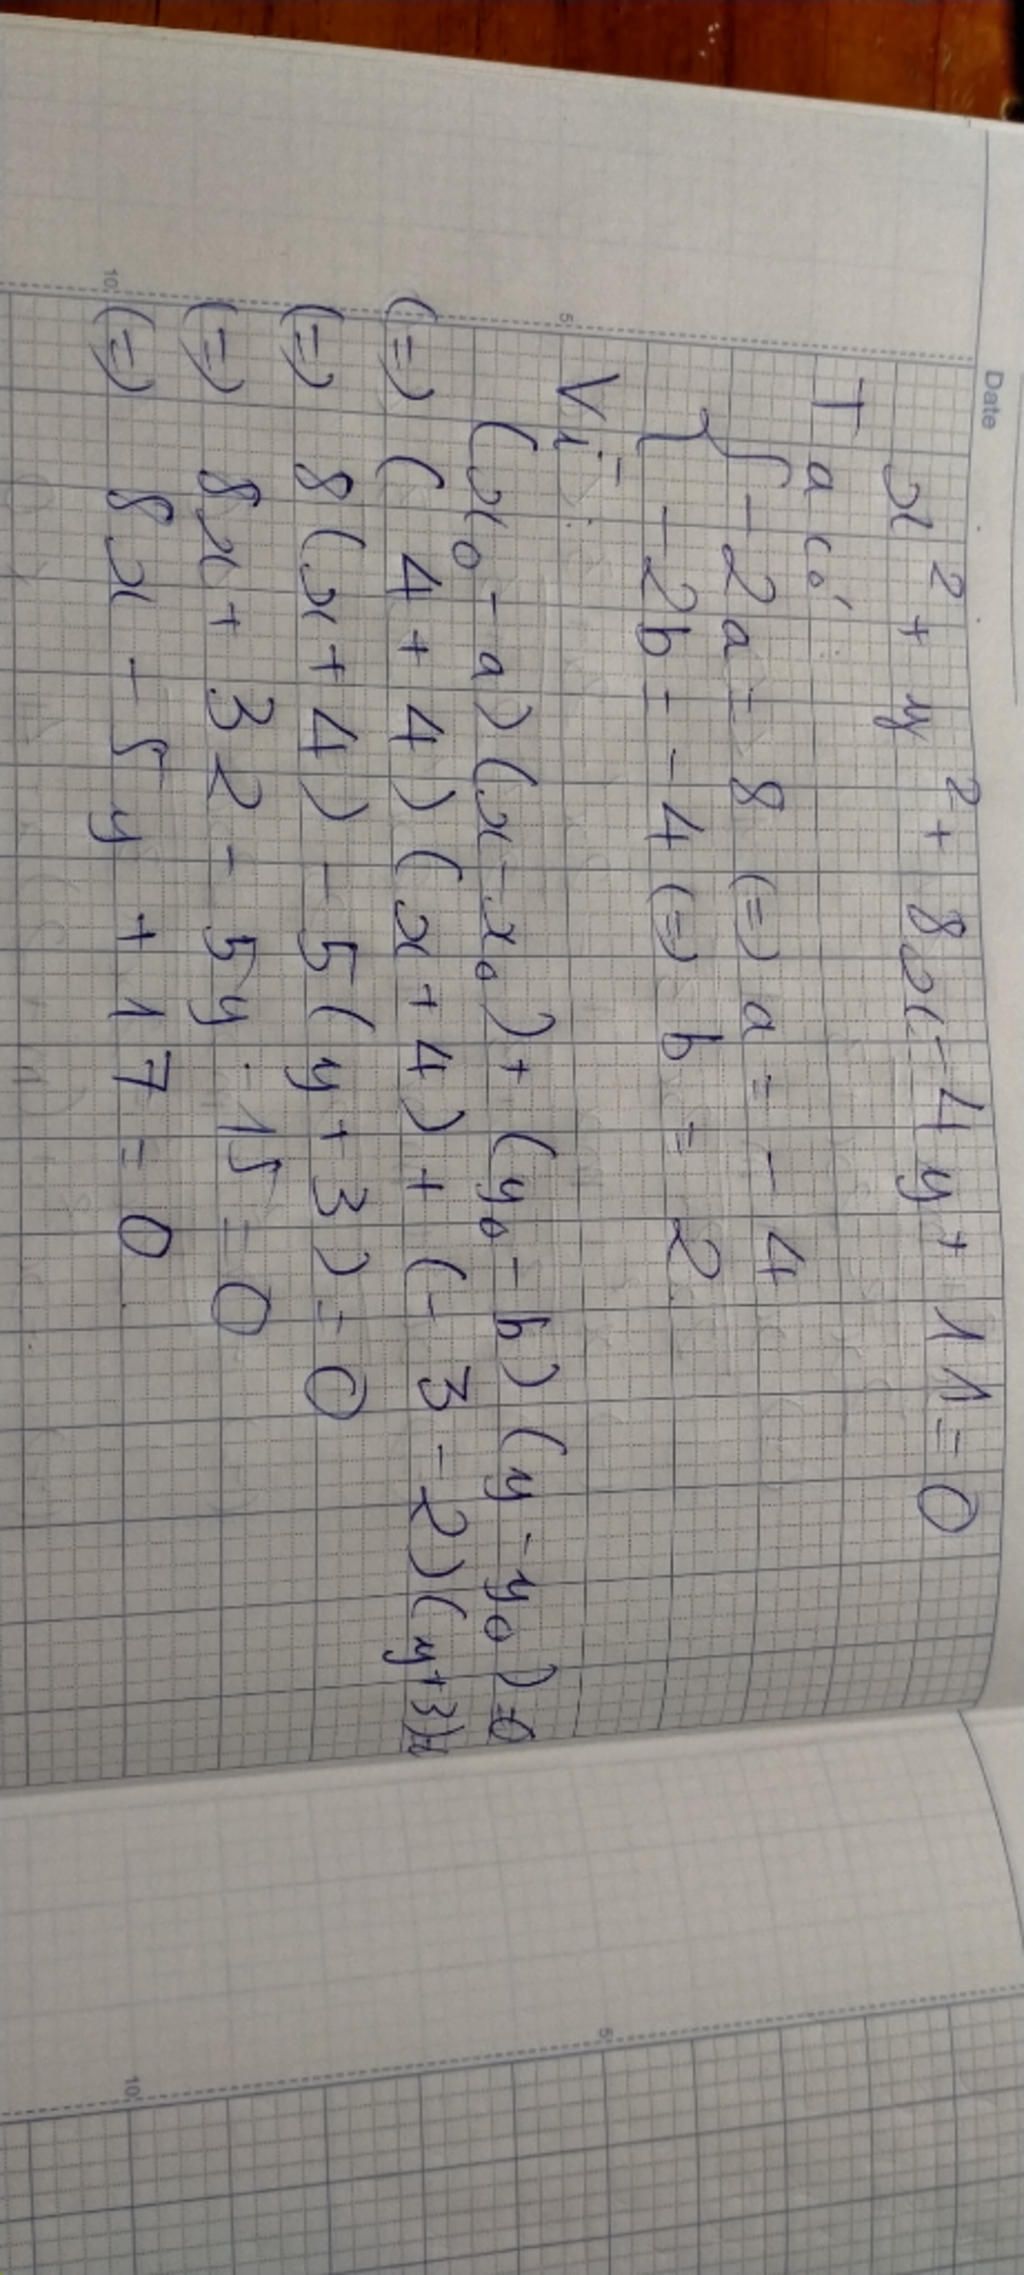 Date
x² + y² + 8x - 4y + 11 = 0
Ta có:
{ -2a = 8 (=) a = -4
-2b = -4 (=) b = 2
Vì:
5
(x₀ - a)(x - x₀) + (y₀ - b)(y - y₀) = 0
(=) (4 + 4)(x + 4) + (-3 - 2)(y + 3) =
(=) 8(x + 4) - 5(y + 3) = 0
(=) 8x + 32 - 5y - 15 = 0
(=) 8x - 5y + 17 = 0
10
5
10